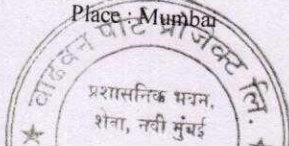 Place : Mumbai
वाढवन पोर्ट प्रोजेक्ट लि.
प्रशासनिक भवन,
शेवा, नवी मुंबई